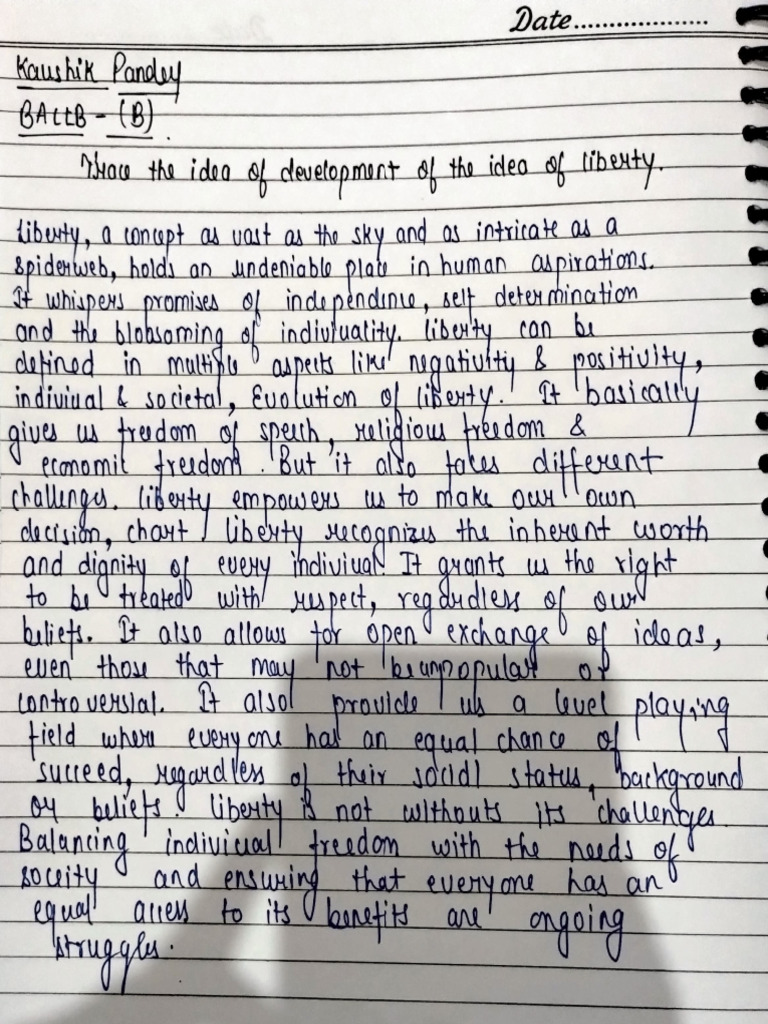 Date...................
Kaushik Pandey
BALLB - (B).
Trace the idea of development of the idea of liberty.
Liberty, a concept as vast as the sky and as intricate as a
spiderweb, holds an undeniable place in human aspirations.
It whispers promises of independence, self determination
and the blobsoming of indivituality. Liberty can be
defined in multiple aspects like negativitiy & positivity,
indiviual & societal, Evolution of liberty. It basically
gives us freedom of speech, religious freedom &
economic freedom. But it also faces different
challenges. Liberty empowers us to make our own
decision, chart liberty recognizes the inherent worth
and dignity of every indiviual. It grants us the right
to be treated with respect, regardless of our
beliefs. It also allows for open exchange of ideas,
even those that may not be unpopular or
controversial. It also provide us a level playing
field where everyone has an equal chance of
succeed, regardless of their social status, background
or beliefs. Liberty is not withouts its challenges.
Balancing indiviual freedom with the needs of
soceity and ensuring that everyone has an
equal access to its benefits are ongoing
struggles.